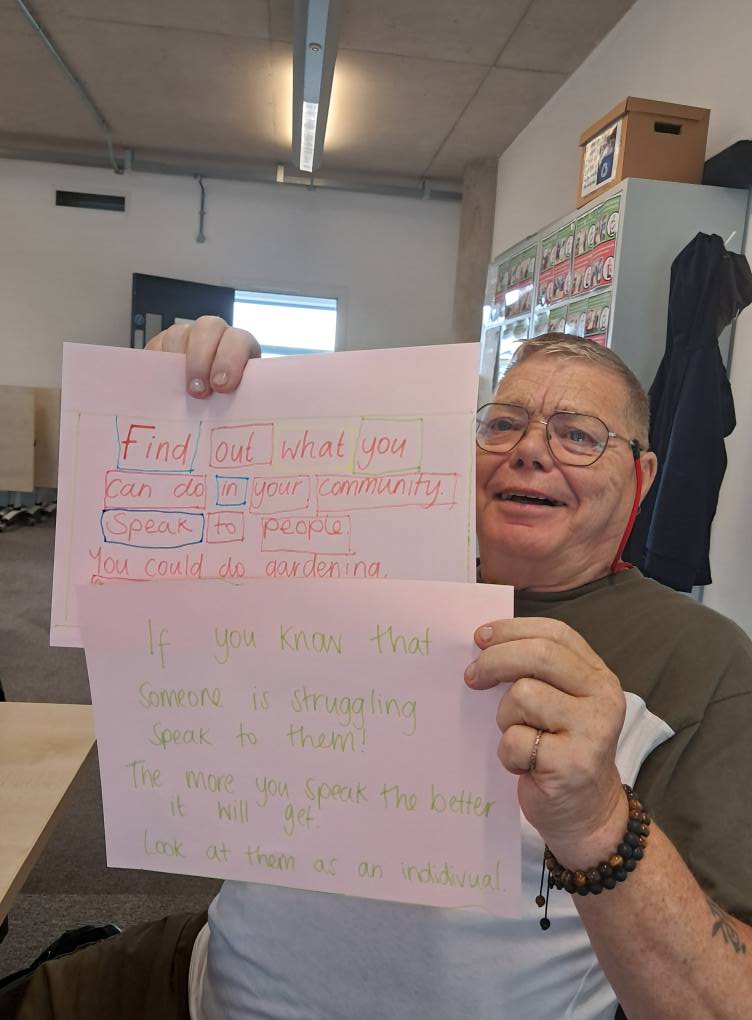 Find out what you
can do in your community.
Speak to people.
You could do gardening.
If you know that
Someone is struggling
Speak to them!
The more you speak the better
it will get.
Look at them as an indidivual.